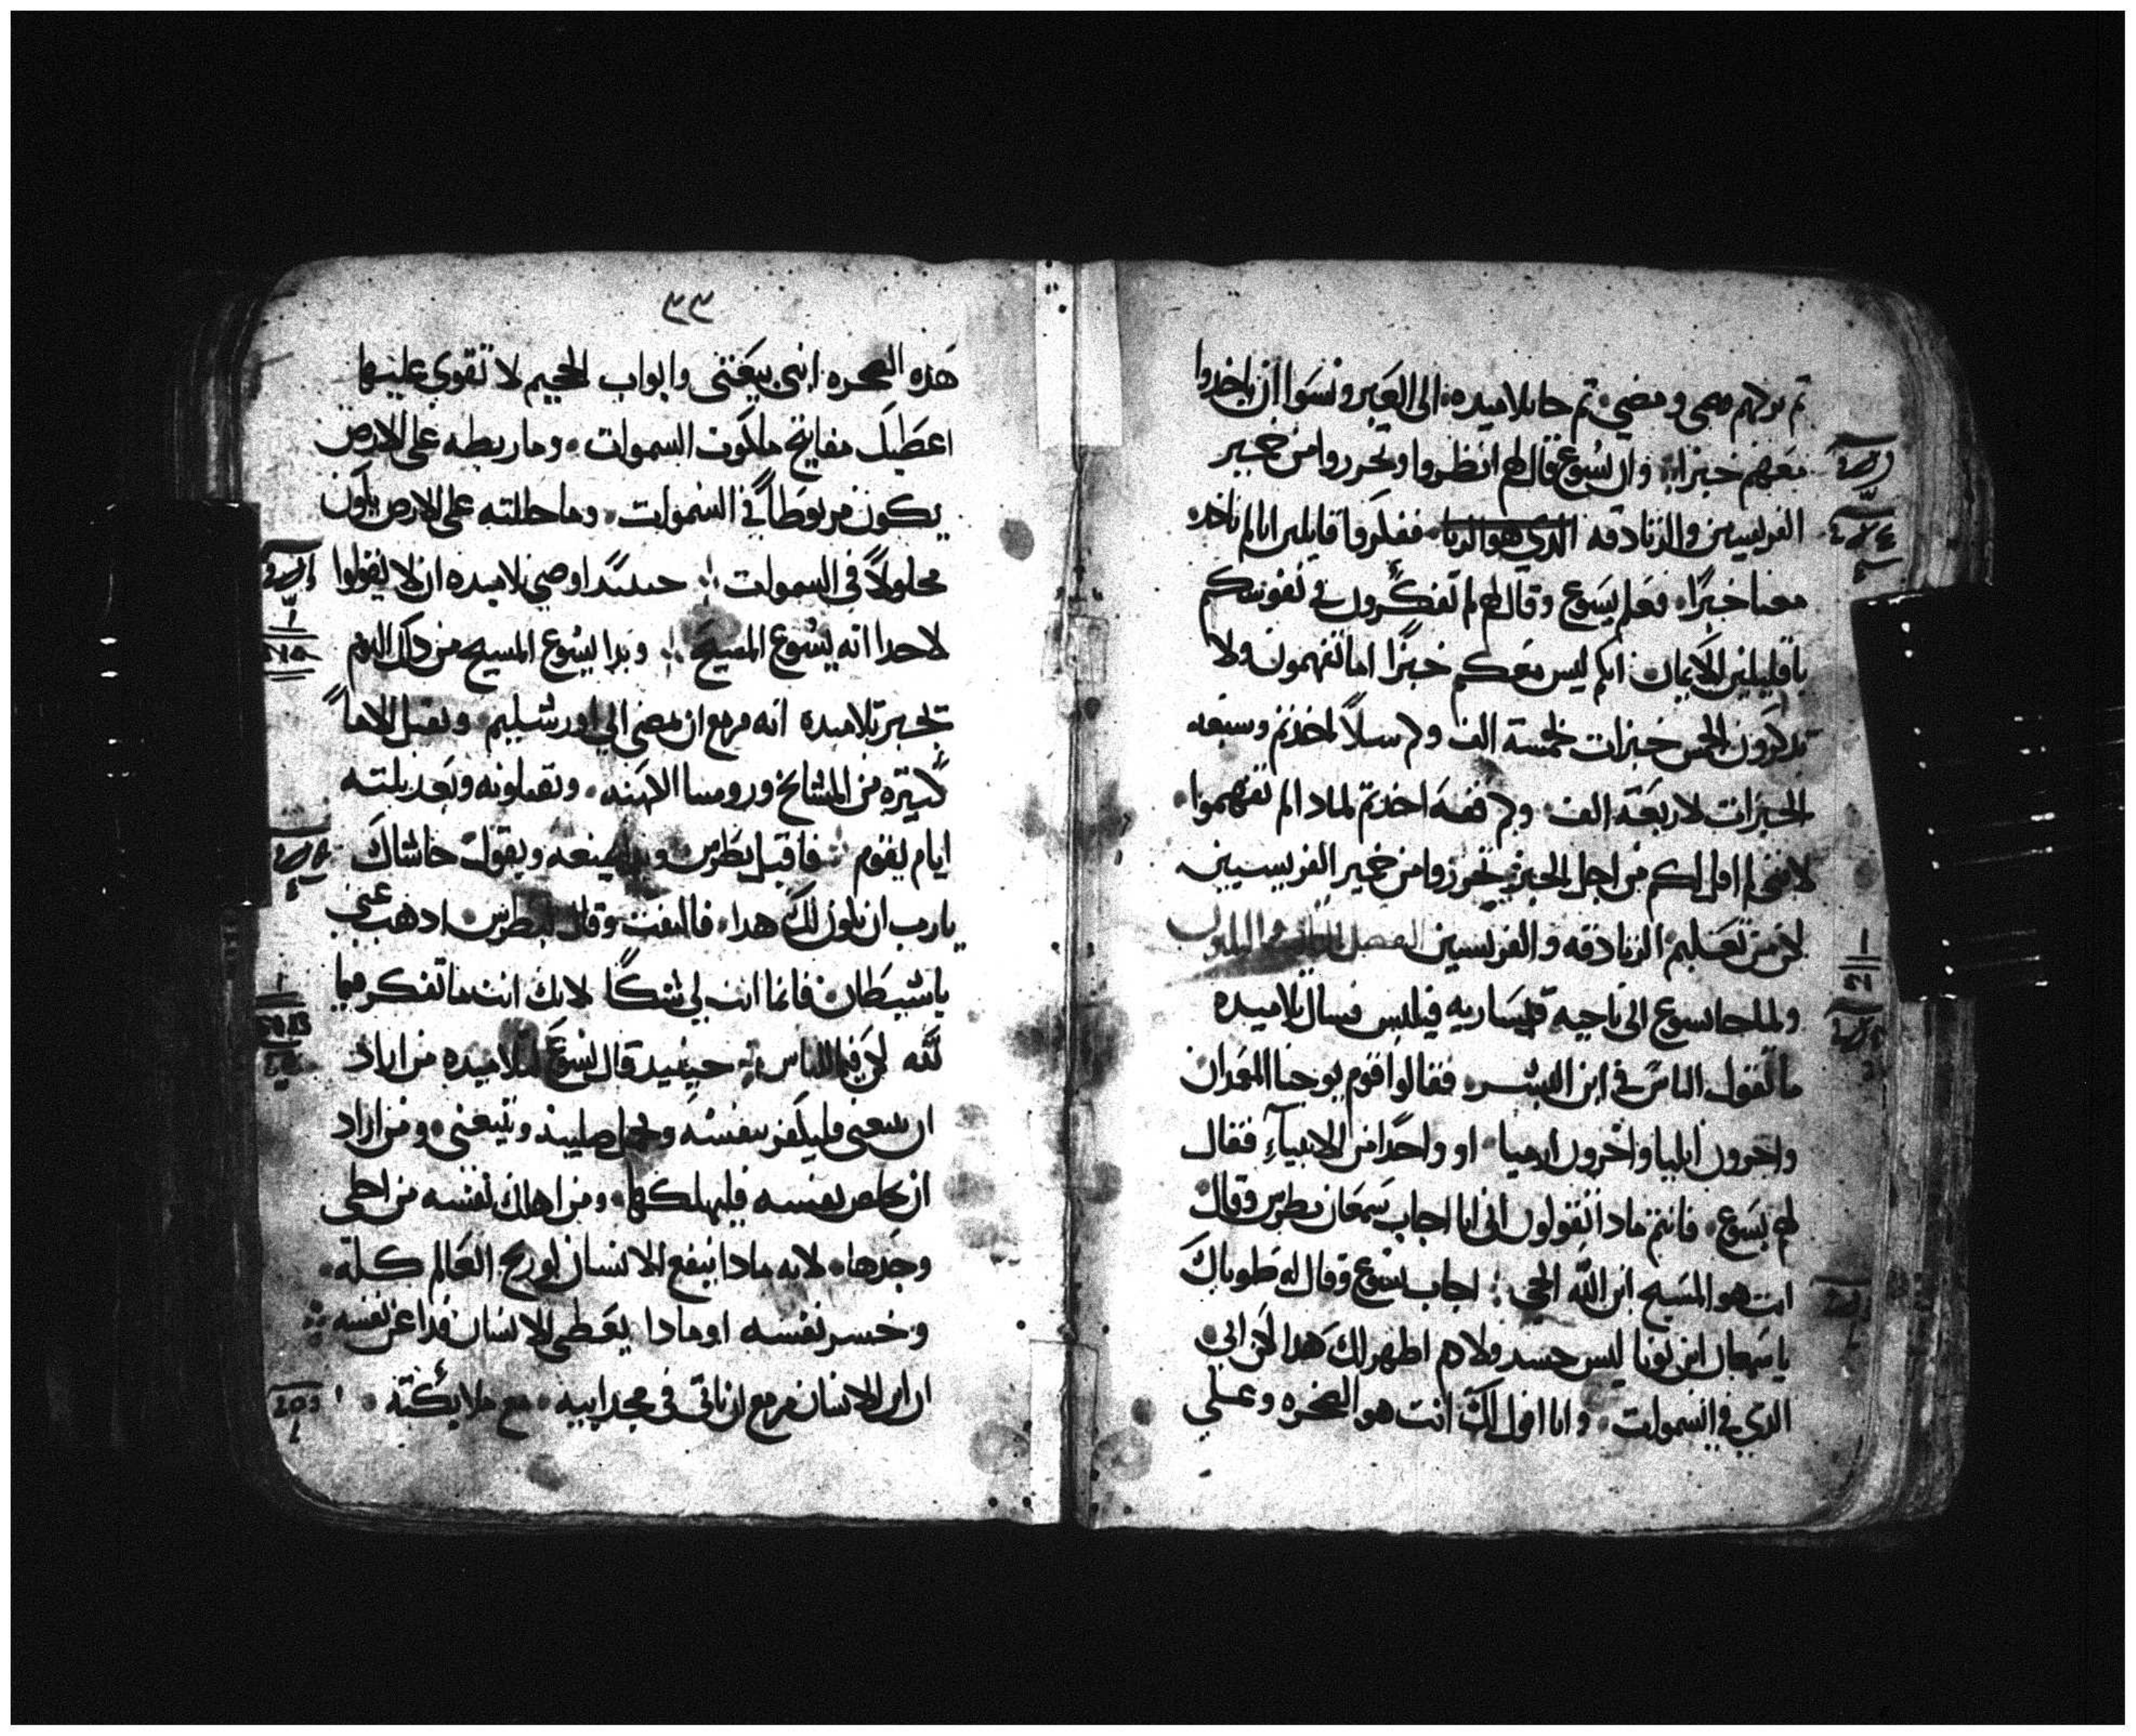 تم تركهم ومضي، تم جا تلاميده، الى العبر ونسوا ان ياخدوا
معهم خبزا، وان يسوع قال لهم انظروا وتحرروا من خمير
الفريسيين والزنادقه الدي هو الريا، ففكروا قايلين انا لم ناخد
معنا خبزًا، فعلم يسوع وقال لهم لم تفكرون في نفوسكم
يا قليلين الايمان، انكم ليس معكم خبزًا اما تفهمون ولا
تدكرون الخمس خبزات لخمسة الف وكم سلاً اخدتم وسبعه
الخبزات لاربعة الف، وكم قفه اخدتم لمادا لم تفهموا،
لانني لم اقل لكم من اجل الخبز تحرزوا من خمير الفريسيين
لكن من تعليم الزنادقه والفريسين الفصل
ولما جا يسوع الى ناحيه قيساريه فيلبس فسال تلاميده
ما تقول الناس في ابن البشر، فقالوا قوم يوحنا المعمدان
واخرون ايليا واخرون ارميا، او واحدًا من الانبيآء فقال
لهم يسوع، فانتم مادا تقولون اني انا اجاب سمعان بطرس وقال
انت هو المسيح ابن الله الحي؛ اجاب يسوع وقال له طوباك
يا سمعان ابن يونا ليس جسد ولا دم اظهر لك هدا لكن ابي
الدي في السموات، وانا اقول لك انت هو الصخره وعلي
٣٣
هذه الصخره ابني بيعتي وابواب الجحيم لا تقوي عليها
اعطيك مفاتيح ملكوت السموات، وما ربطه على الارض
يكون مربوطاً في السموات، وما حاللته على الارض يكون
محلولاً في السموات؛ حينيدًا اوصي تلاميده ان لا يقولوا
لاحد انه يسوع المسيح؛ وبدا يسوع المسيح من دلك اليوم
يخبر تلاميده انه مزمع ان يمضي الي اورشليم، ويقبل الاماً
كثيره من المشايخ وروسا الكهنه، ويقتلونه وبعد تلته
ايام يقوم فاقبل بطرس وبدا يمنعه ويقول حاشاك
يارب ان يكون لك هدا، فالتفت وقال لبطرس ادهب عني
يا شيطان فانما انت لي شكًا لانك انت ما تفكر فيما
لله لكن فيما للناس؛ حينيد قال يسوع لتلاميده من اراد
ان يتبعني فليكفر بنفسه ويحمل صليبه ويتبعني، ومن اراد
ان يخلص نفسه فليهلكها، ومن اهلك نفسه من اجلي
وجدها، لانه مادا ينفع الانسان لو ربح العالم كله،
وخسر نفسه او مادا يعطي الانسان فدا عن نفسه
ان ابن الانسان مزمع ان ياتي في مجد ابيه، مع ملايكته،